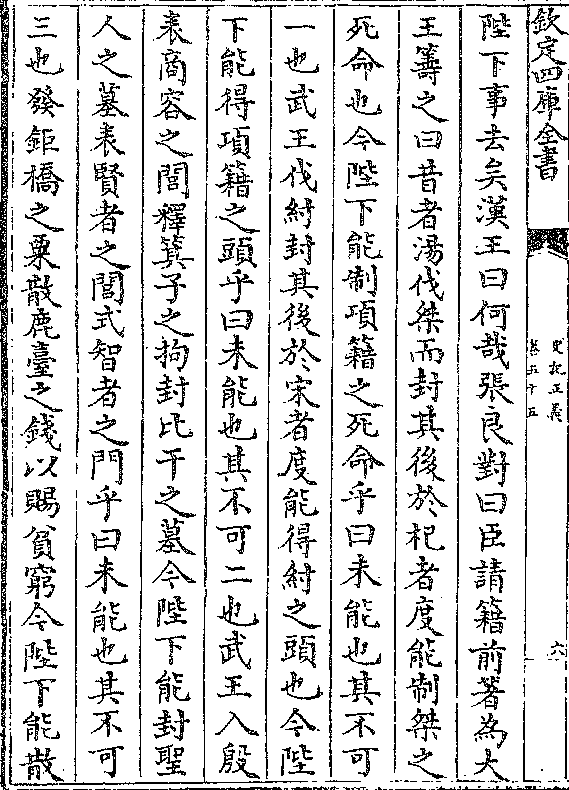 欽定四庫全書
史記正義
卷五十五
六
陛下事去矣漢王曰何哉張良對曰臣請籍前箸為大
王籌之曰昔者湯伐桀而封其後於杞者度能制桀之
死命也今陛下能制項籍之死命乎曰未能也其不可
一也武王伐紂封其後於宋者度能得紂之頭也今陛
下能得項籍之頭乎曰未能也其不可二也武王入殷
表商容之閭釋箕子之拘封比干之墓今陛下能封聖
人之墓表賢者之閭式智者之門乎曰未能也其不可
三也發鉅橋之粟散鹿臺之錢以賜貧窮今陛下能散